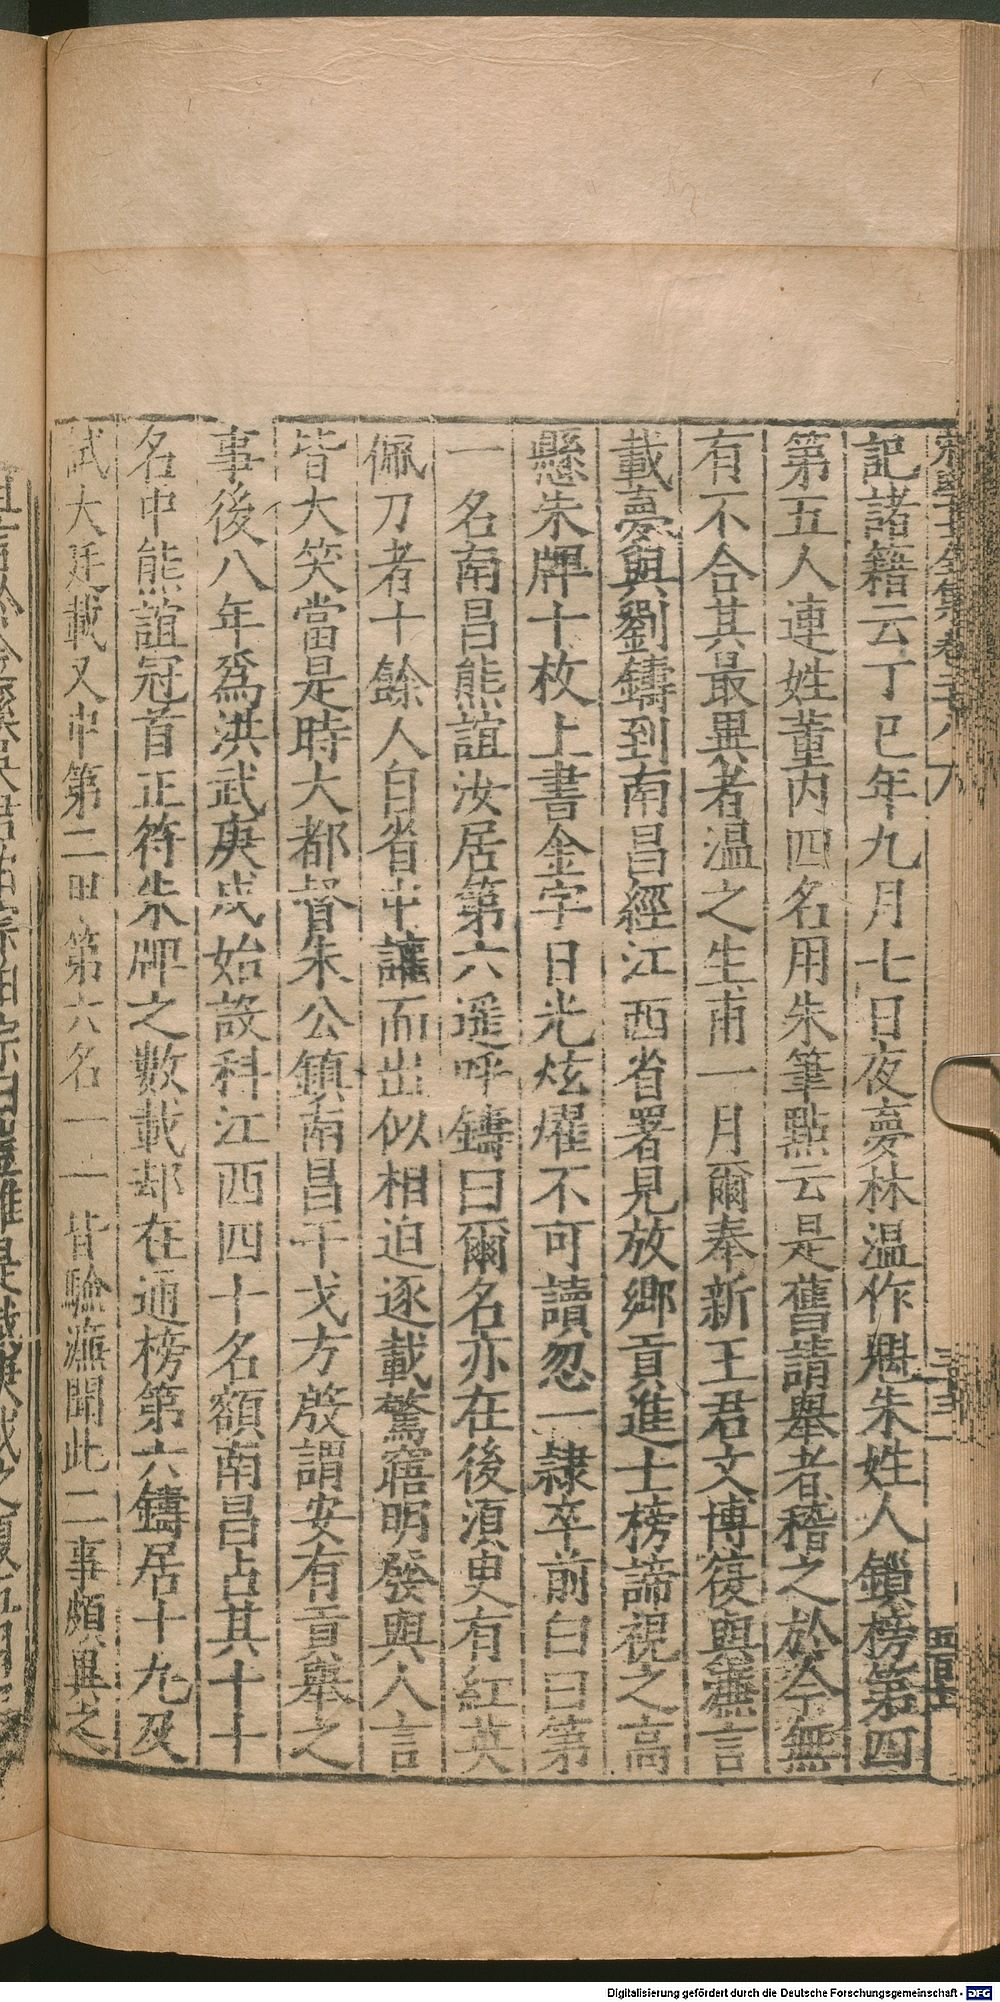 記諸籍云丁巳年九月七日夜夢林温作魁朱姓人鎖榜第四
第五人連姓董内四名用朱筆點云是舊請舉者稽之於今無
有不合其最異者温之生甫一月爾奉新王君文博復與濂言
載夢與劉鑄到南昌經江西省署見放鄉貢進士榜諦視之高
懸朱牌十枚上書金字日光炫燿不可讀忽一隷卒前白曰第
一名南昌熊誼汝居第六遥呼鑄曰爾名亦在後湏臾有紅英
佩刀者十餘人自省中讙而出似相迫逐載驚寤明發與人言
皆大笑當是時大都督朱公鎮南昌干戈方殷謂安有貢舉之
事後八年爲洪武庚戌始設科江西四十名額南昌占其十十
名中熊誼冠首正符朱牌之數載却在通榜第六鑄居十九及
試大廷載又中第二甲第六名一一皆驗濂聞此二事頗異之
Digitalisierung gefördert durch die Deutsche Forschungsgemeinschaft - DFG